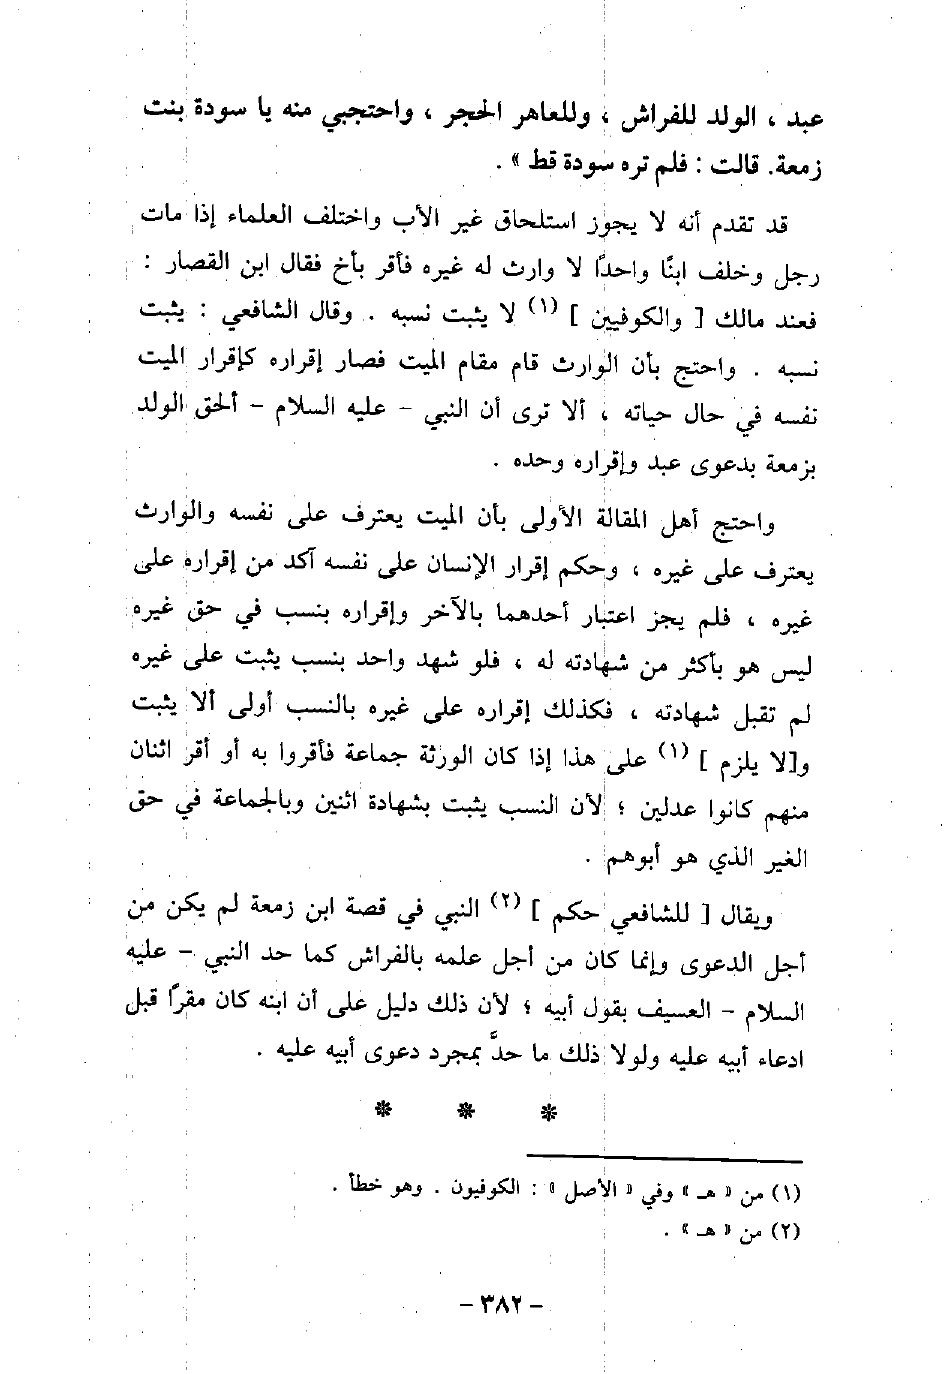 عبد ، الولد للفراش ، وللعاهر الحجر ، واحتجبي منه يا سودة بنت
زمعة. قالت : فلم تره سودة قط » .
قد تقدم أنه لا يجوز استلحاق غير الأب واختلف العلماء إذا مات
رجل وخلف ابنًا واحدًا لا وارث له غيره فأقر بأخ فقال ابن القصار :
فعند مالك [ والكوفيين ] (١) لا يثبت نسبه . وقال الشافعي : يثبت
نسبه . واحتج بأن الوارث قام مقام الميت فصار إقراره كإقرار الميت
نفسه في حال حياته ، ألا ترى أن النبي - عليه السلام - ألحق الولد
بزمعة بدعوى عبد وإقراره وحده .
واحتج أهل المقالة الأولى بأن الميت يعترف على نفسه والوارث
يعترف على غيره ، وحكم إقرار الإنسان على نفسه آكد من إقراره على
غيره ، فلم يجز اعتبار أحدهما بالآخر وإقراره بنسب في حق غيره
ليس هو بأكثر من شهادته له ، فلو شهد واحد بنسب يثبت على غيره
لم تقبل شهادته ، فكذلك إقراره على غيره بالنسب أولى ألا يثبت
و[لا يلزم ] (١) على هذا إذا كان الورثة جماعة فأقروا به أو أقر اثنان
منهم كانوا عدلين ؛ لأن النسب يثبت بشهادة اثنين وبالجماعة في حق
الغير الذي هو أبوهم .
ويقال [ للشافعي حكم ] (٢) النبي في قصة ابن زمعة لم يكن من
أجل الدعوى وإنما كان من أجل علمه بالفراش كما حد النبي - عليه
السلام - العسيف بقول أبيه ؛ لأن ذلك دليل على أن ابنه كان مقرًا قبل
ادعاء أبيه عليه ولولا ذلك ما حدَّ بمجرد دعوى أبيه عليه .
* * *
(١) من « هـ » وفي « الأصل » : الكوفيون . وهو خطأ .
(٢) من « هـ » .
- ٣٨٢ -